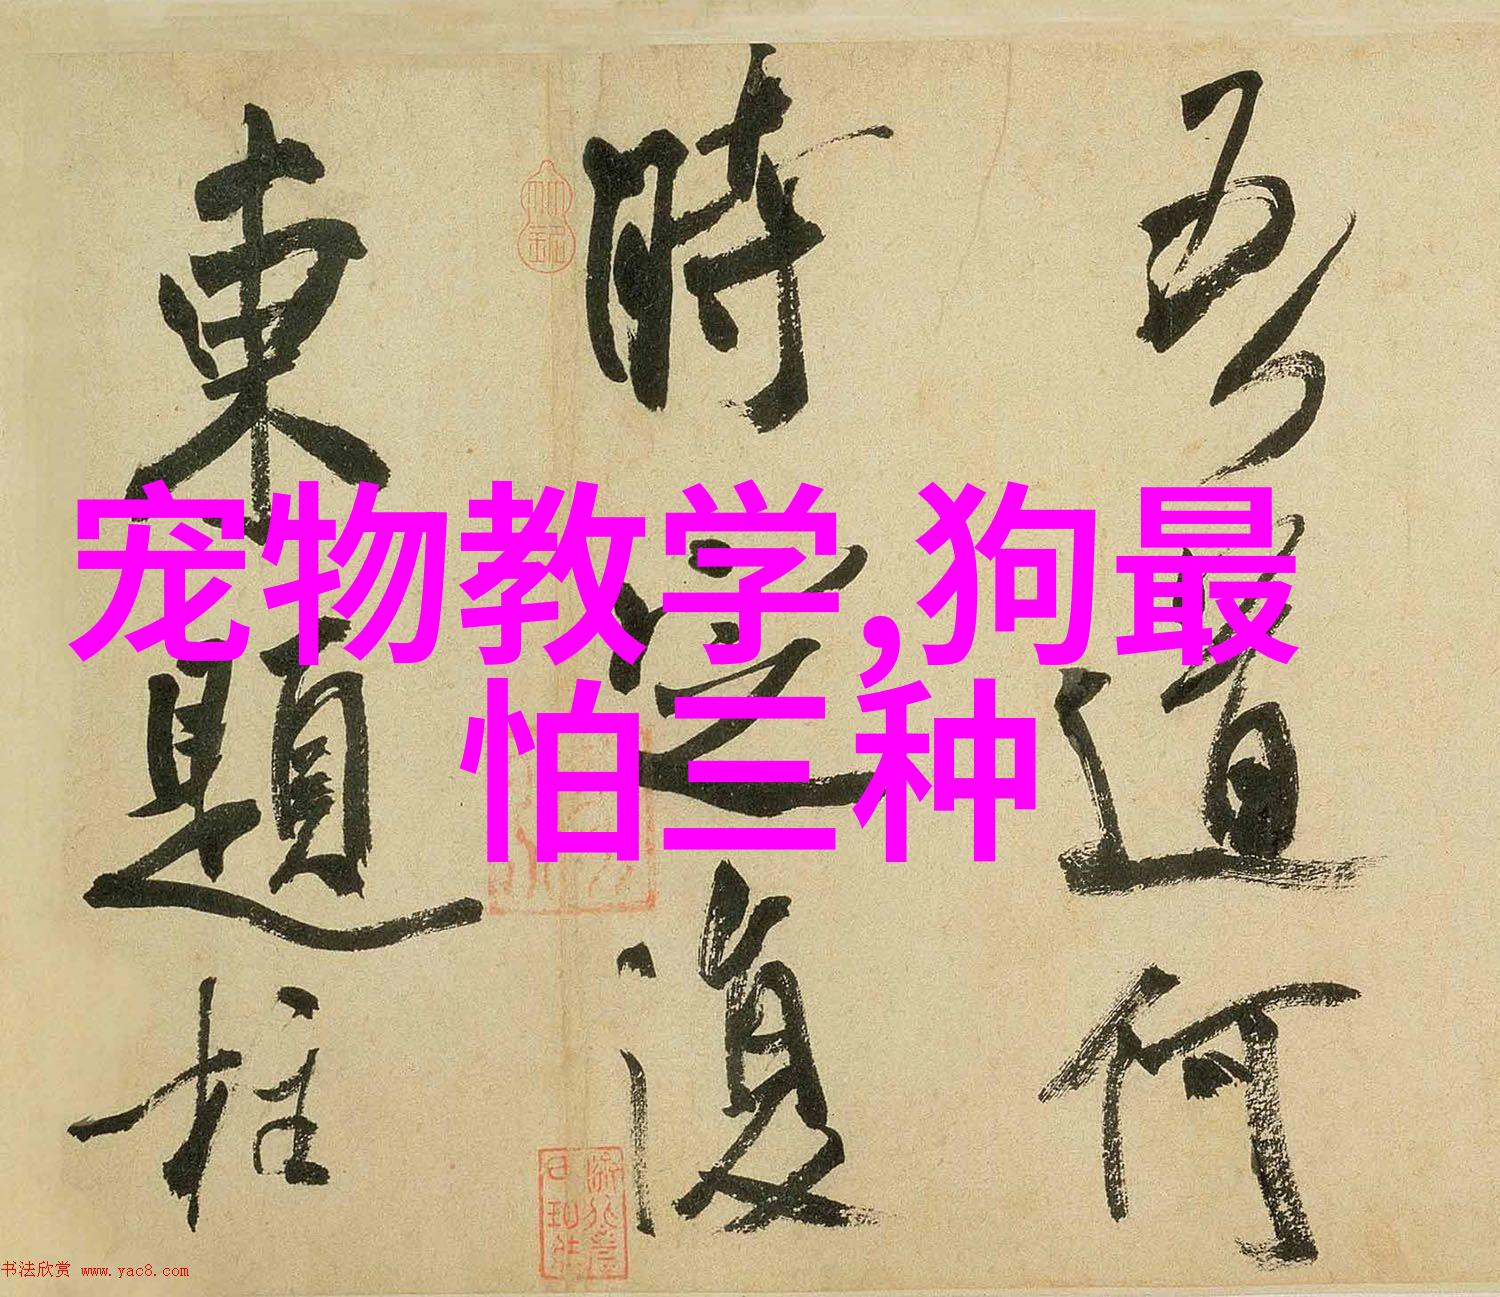 宠物教学,狗最
怕三种
吾道何
時定復
東題柱
书法欣赏 www.yac8.com